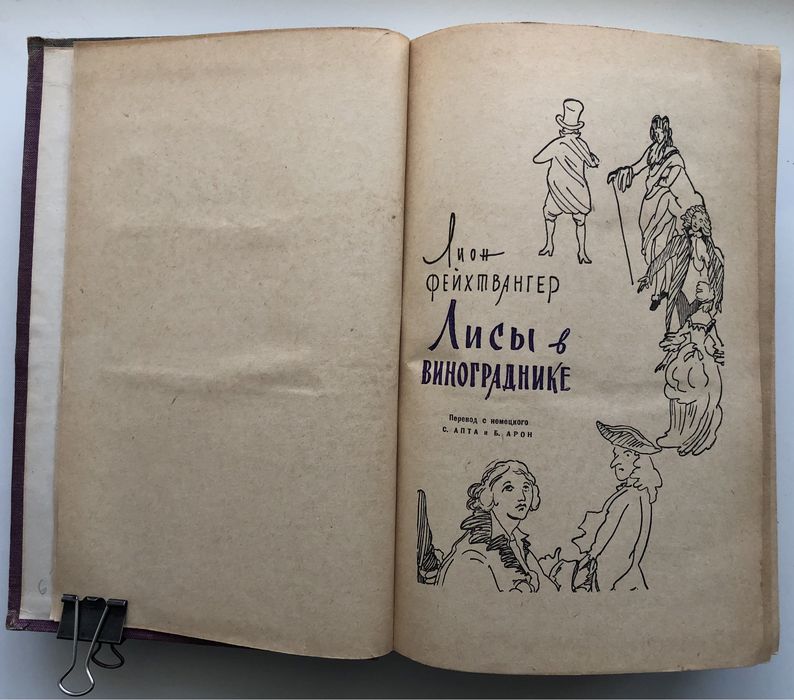 Лион
ФЕЙХТВАНГЕР
Лисы в
ВИНОГРАДНИКЕ
Перевод с немецкого
С. АПТА и Б. АРОН
6